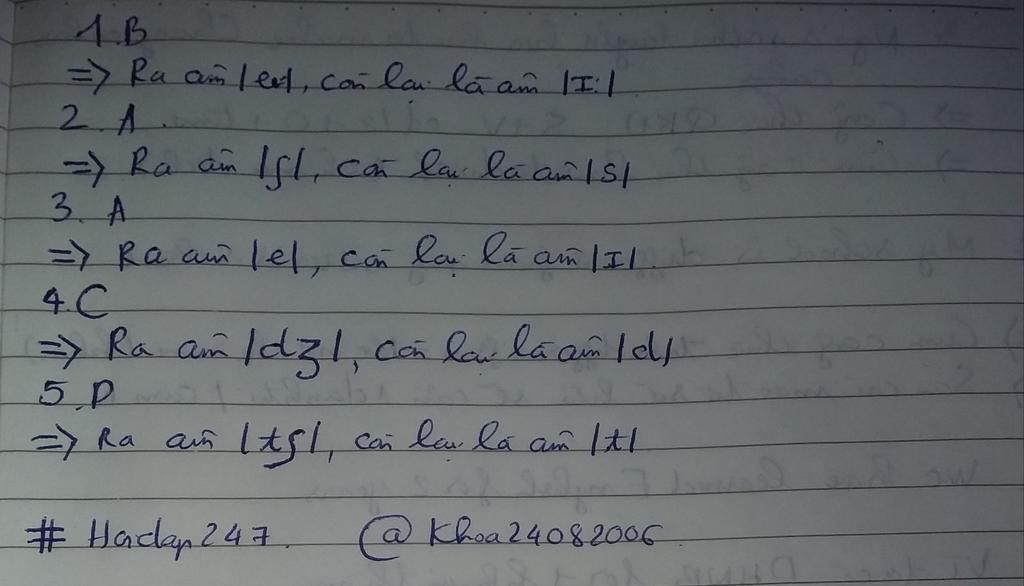 1. B
=> Ra âm /ei/, còn lại là âm /I:/
2. A
=> Ra âm /ʃ/, còn lại là âm /s/
3. A
=> Ra âm /e/, còn lại là âm /I/
4. C
=> Ra âm /dʒ/, còn lại là âm /d/
5. D
=> Ra âm /tʃ/, còn lại là âm /t/
# Hoidap247. @Khoa24082006